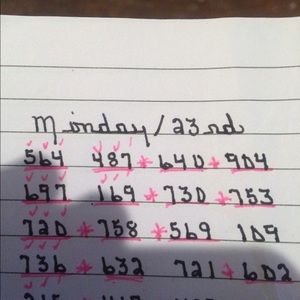 Monday/23rd
564 487 * 640 * 904
697 169 * 730 * 753
720 * 758 * 569 109
736 * 632 721 * 602